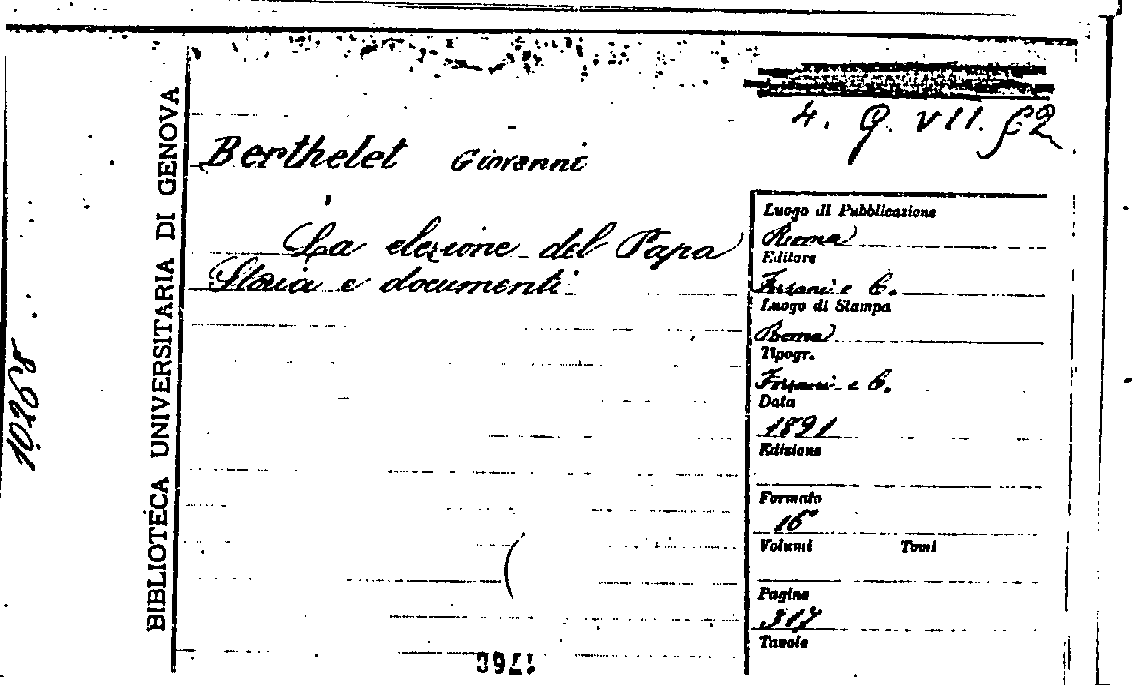 BIBLIOTECA UNIVERSITARIA DI GENOVA
10268
4. Q. VII. 62
Berthelet Giovanni
La elezione del Papa
Storia e documenti
Luogo di Pubblicazione
Roma
Editore
Forzani e C.
Luogo di Stampa
Roma
Tipogr.
Forzani e C.
Data
1891
Edizione
Formato
16°
Volumi Tomi
Pagine
317
Tavole